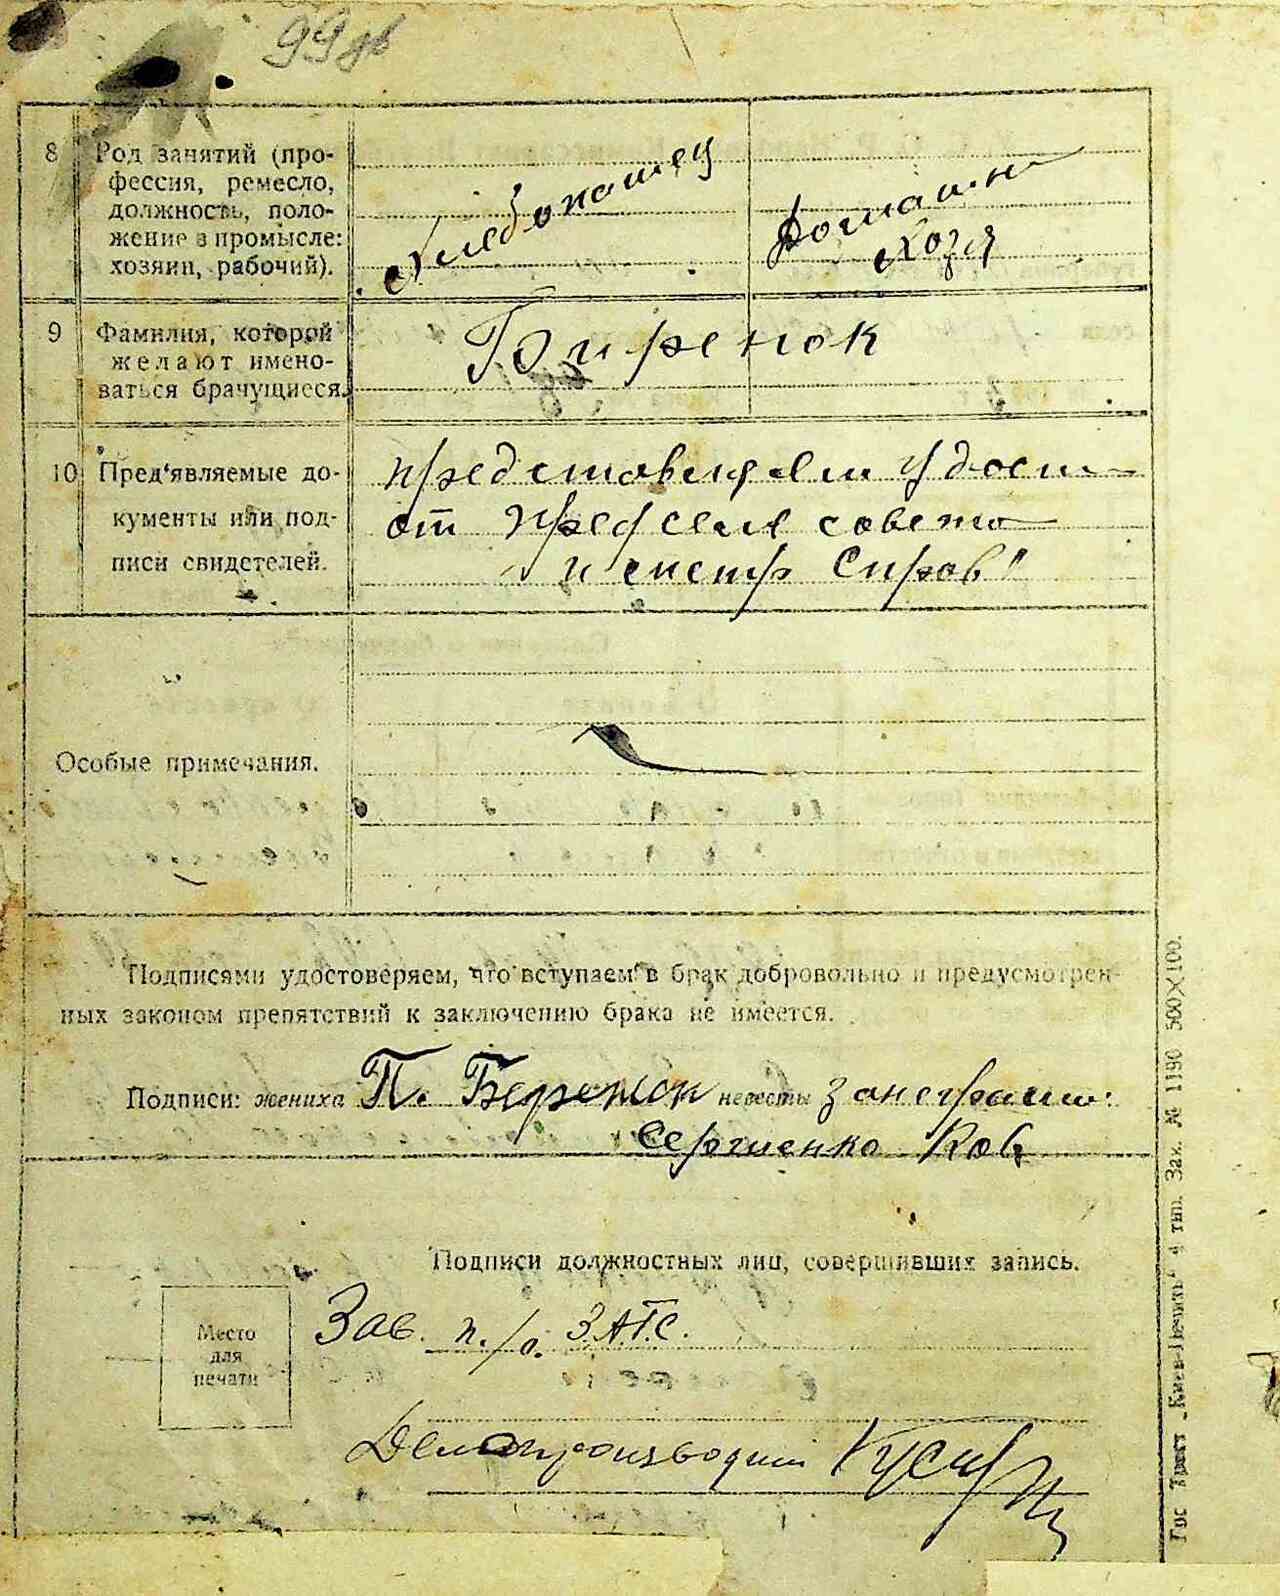 99 зв
8 Род занятий (про-
фессия, ремесло,
должность, поло-
жение в промысле:
хозяин, рабочий).
Хлебопашец
Домашн
Хозя
9 Фамилия, которой
желают имено-
ваться брачущиеся.
Биренок
10 Пред'являемые до-
кументы или под-
писи свидетелей.
представили удост
от пред сель совета
и метр Справ"
Особые примечания.
Подписями удостоверяем, что вступаем в брак добровольно и предусмотрен-
ных законом препятствий к заключению брака не имеется.
Подписи: жениха П. Беренок невесты за неграмот
Сергиенко
Подписи должностных лиц, совершивших запись.
Место
для
печати
Зав. п./о. ЗАГС.
Делопроизводит
Гос. Трест „Киев-Печать" 4 тип. Зак. № 1190 500×100.